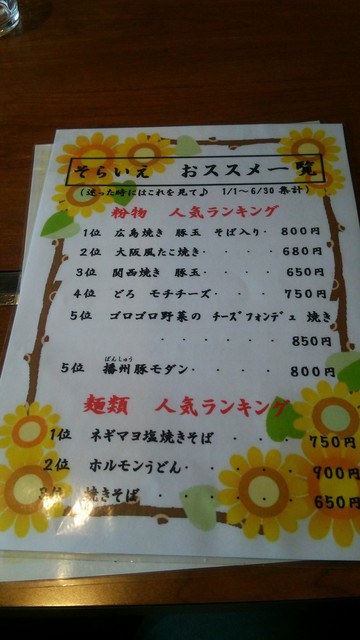 そらいえ おススメ一覧
(迷った時にはこれを見て♪ 1/1～6/30 集計)
粉物 人気ランキング
1位 広島焼き 豚玉 そば入り・800円
2位 大阪風たこ焼き・・・・680円
3位 関西焼き 豚玉・・・・650円
4位 どろ モチチーズ・・・750円
5位 ゴロゴロ野菜の チーズフォンデュ 焼き
・・・・・・850円
ばんしゅう
5位 播州豚モダン・・・・800円
麺類 人気ランキング
1位 ネギマヨ塩焼きそば・・・750円
2位 ホルモンうどん・・・・900円
3位 焼きそば・・・・・650円